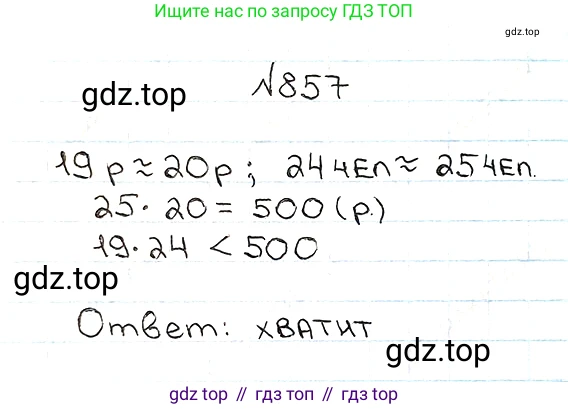 Ищите нас по запросу ГДЗ ТОП
gdz.top
№857
gdz.top
19 р ≈ 20р; 24 чел ≈ 25 чел.
25 · 20 = 500 (р.)
19 · 24 < 500
gdz.top
Ответ: хватит
gdz.top
gdz top // гдз топ // gdz top